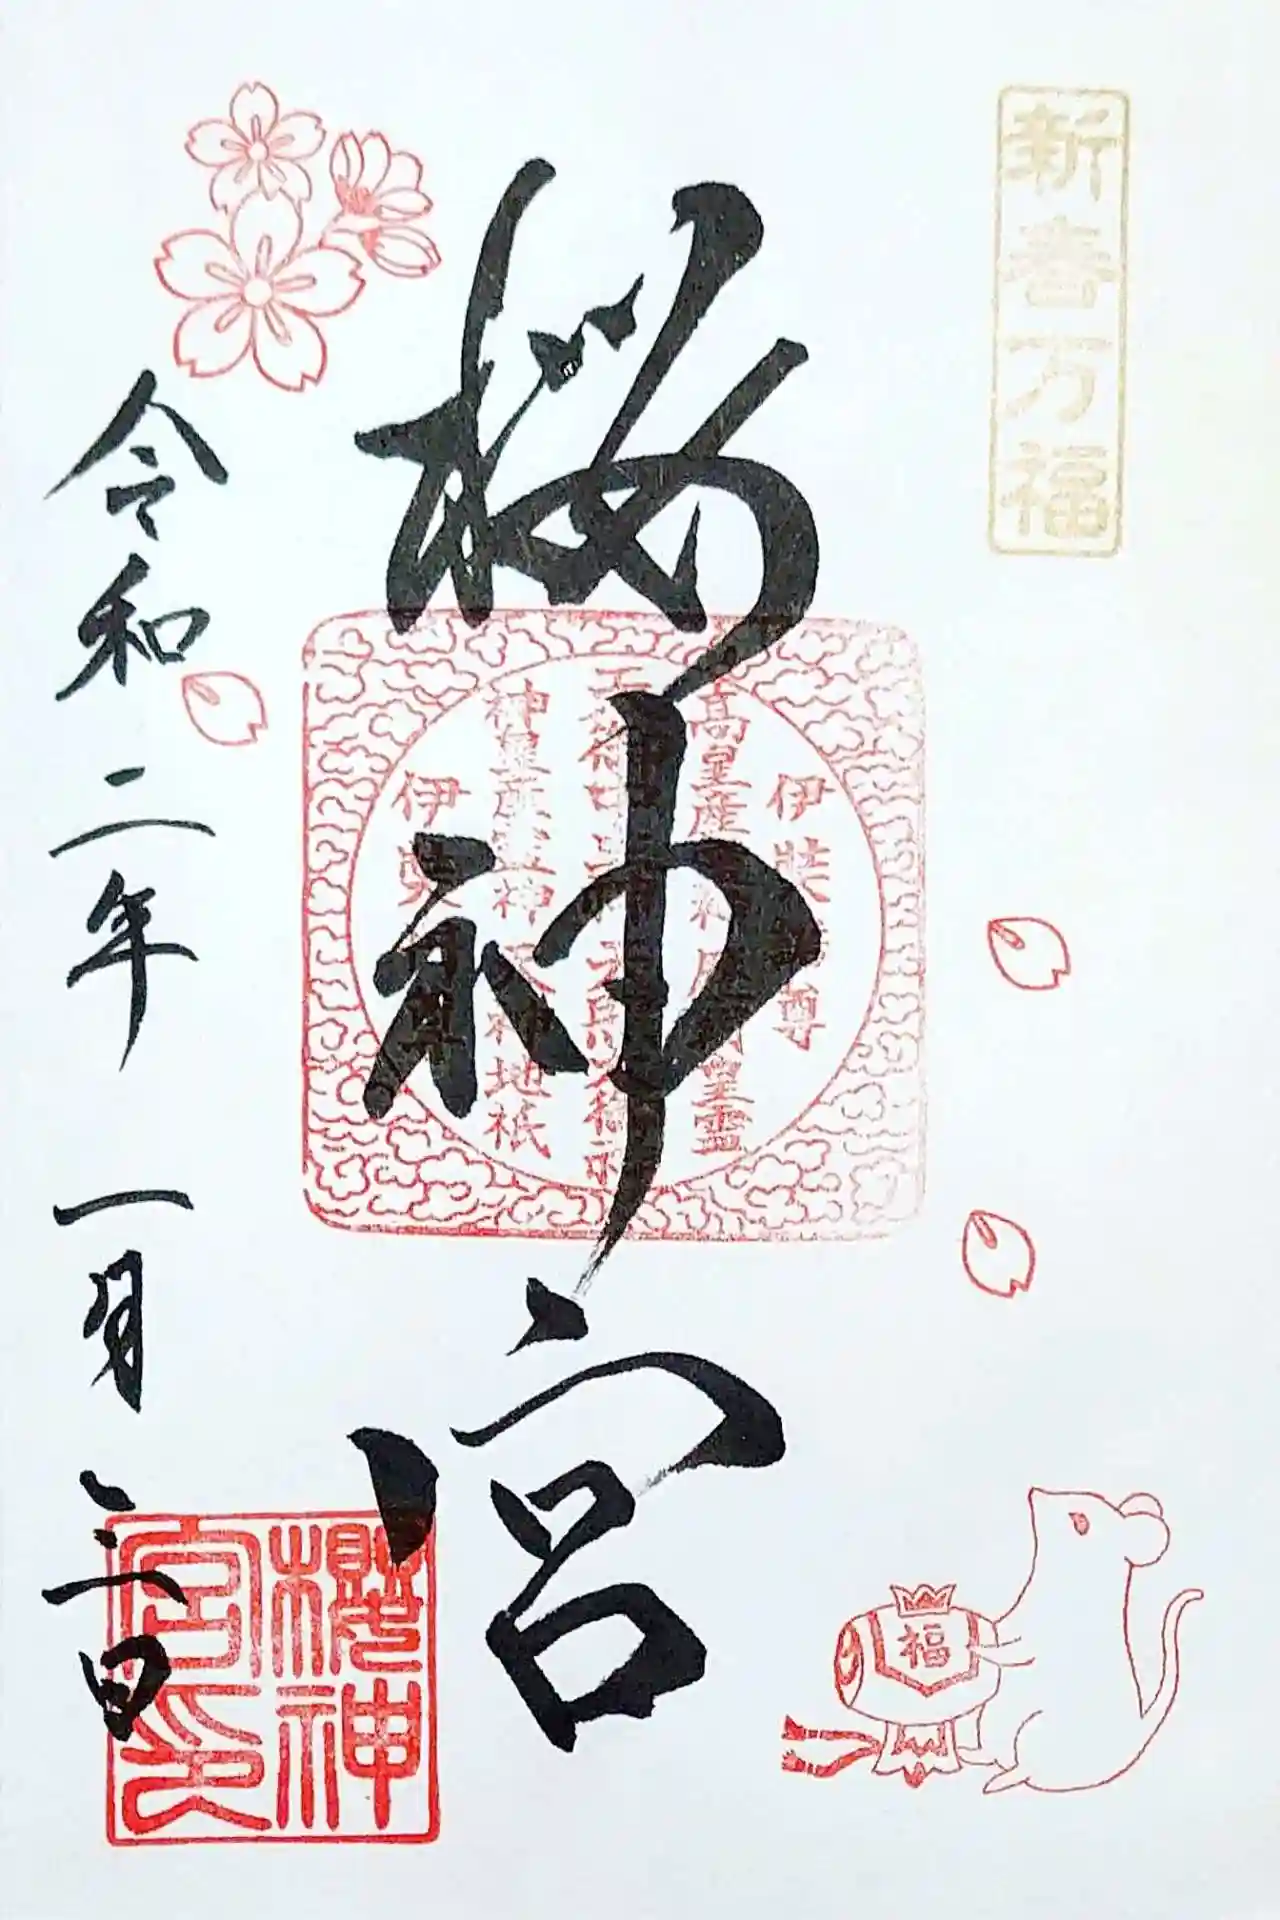 新春万福
桜神宮
伊弉 尊
高皇産 皇霊
神皇産霊神 地祇
伊
令和二年 一月 三日
櫻神
宮印
福